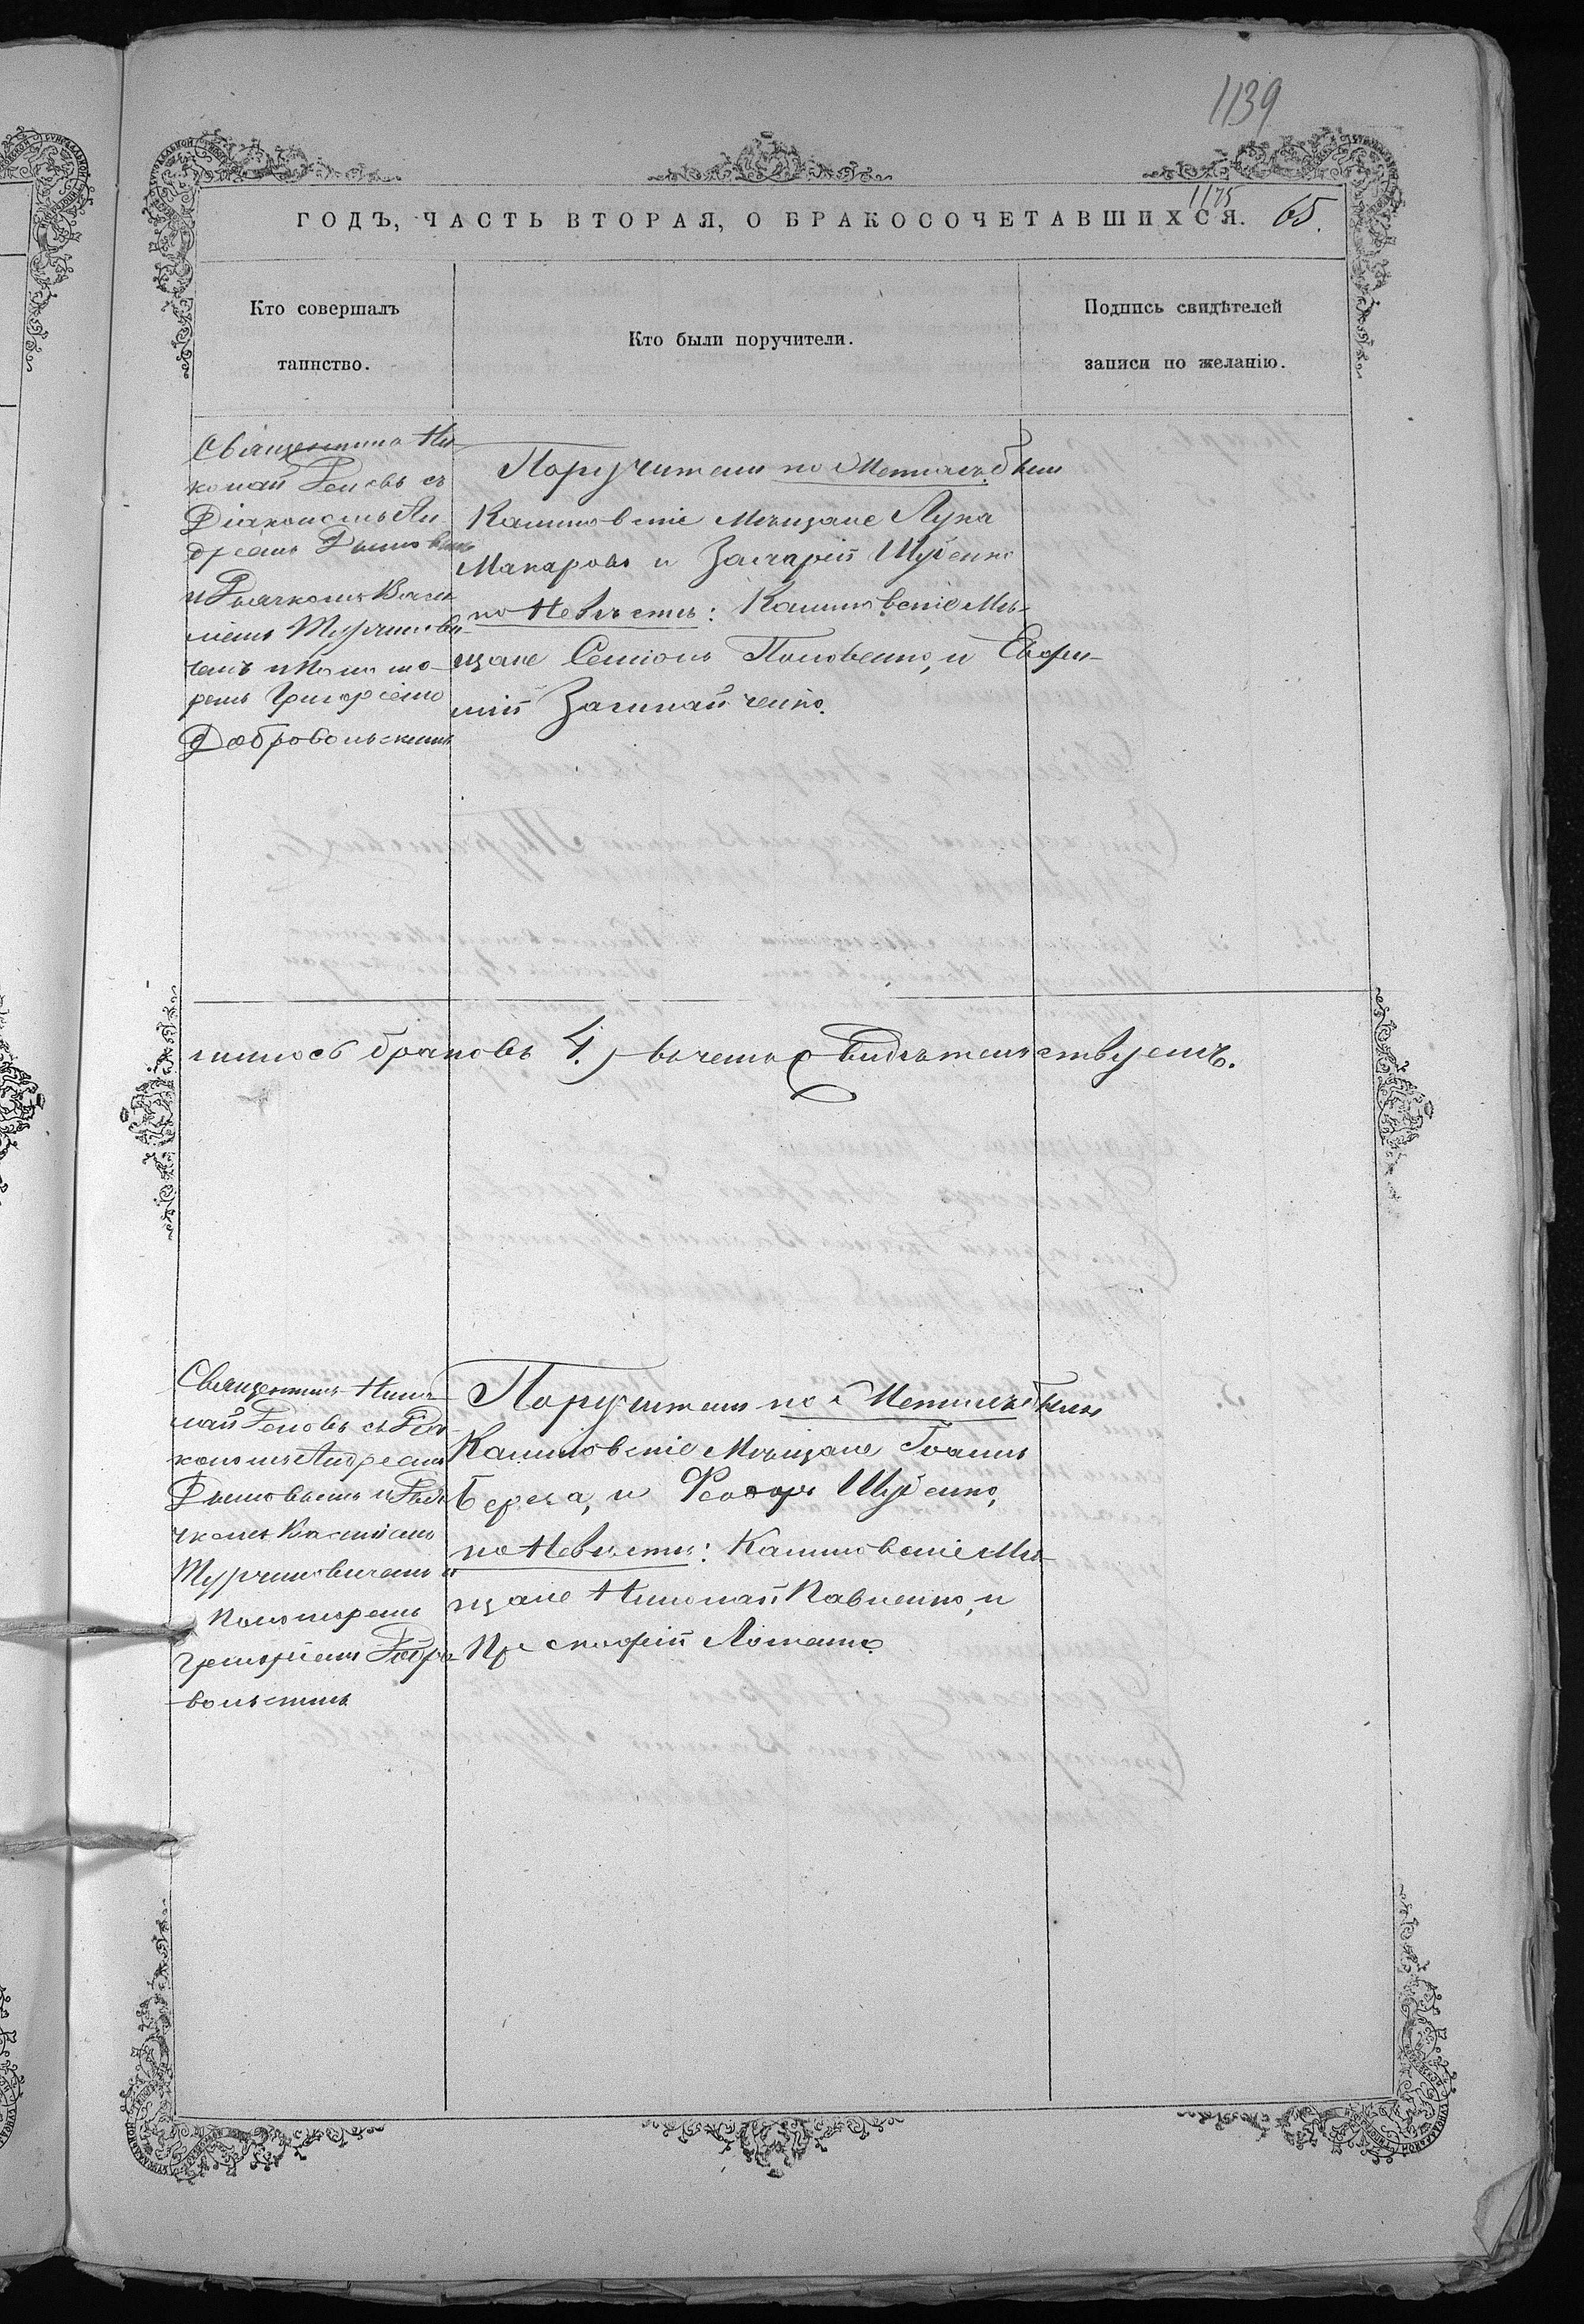 1139
1175
ГОДЪ, ЧАСТЬ ВТОРАЯ, О БРАКОСОЧЕТАВШИХСЯ. 65.
Кто совершалъ
таинство.
Кто были поручители.
Подпись свидѣтелей
записи по желанію.
Священникъ Ни
колай съ
Діакономъ Ан
дреемъ
и Дьячкомъ Васи
ліемъ Турчинови
чемъ и Поно мо-
ремъ Григоріемъ
Добровольскимъ
Поручители по Женихѣ были
Мѣщане Лука
Макаровъ и Захарій Шуленко
по Невѣстѣ: Мѣ-
щане Семіонъ и Евфи-
мій
лилось браковъ 4, въ чемъ свидѣтельствуемъ.
Священникъ Нико
лай съ Діа-
кономъ Андреемъ
и Дья
чкомъ Василіемъ
Турчиновичемъ и
Пономоремъ
Григоріемъ Добро
вольскимъ
Поручители по Женихѣ были
Мѣщане Іоаннъ
Береза, и Феодоръ Шуленко,
по Невѣстѣ: Мѣ-
щане Николай Павленко, и